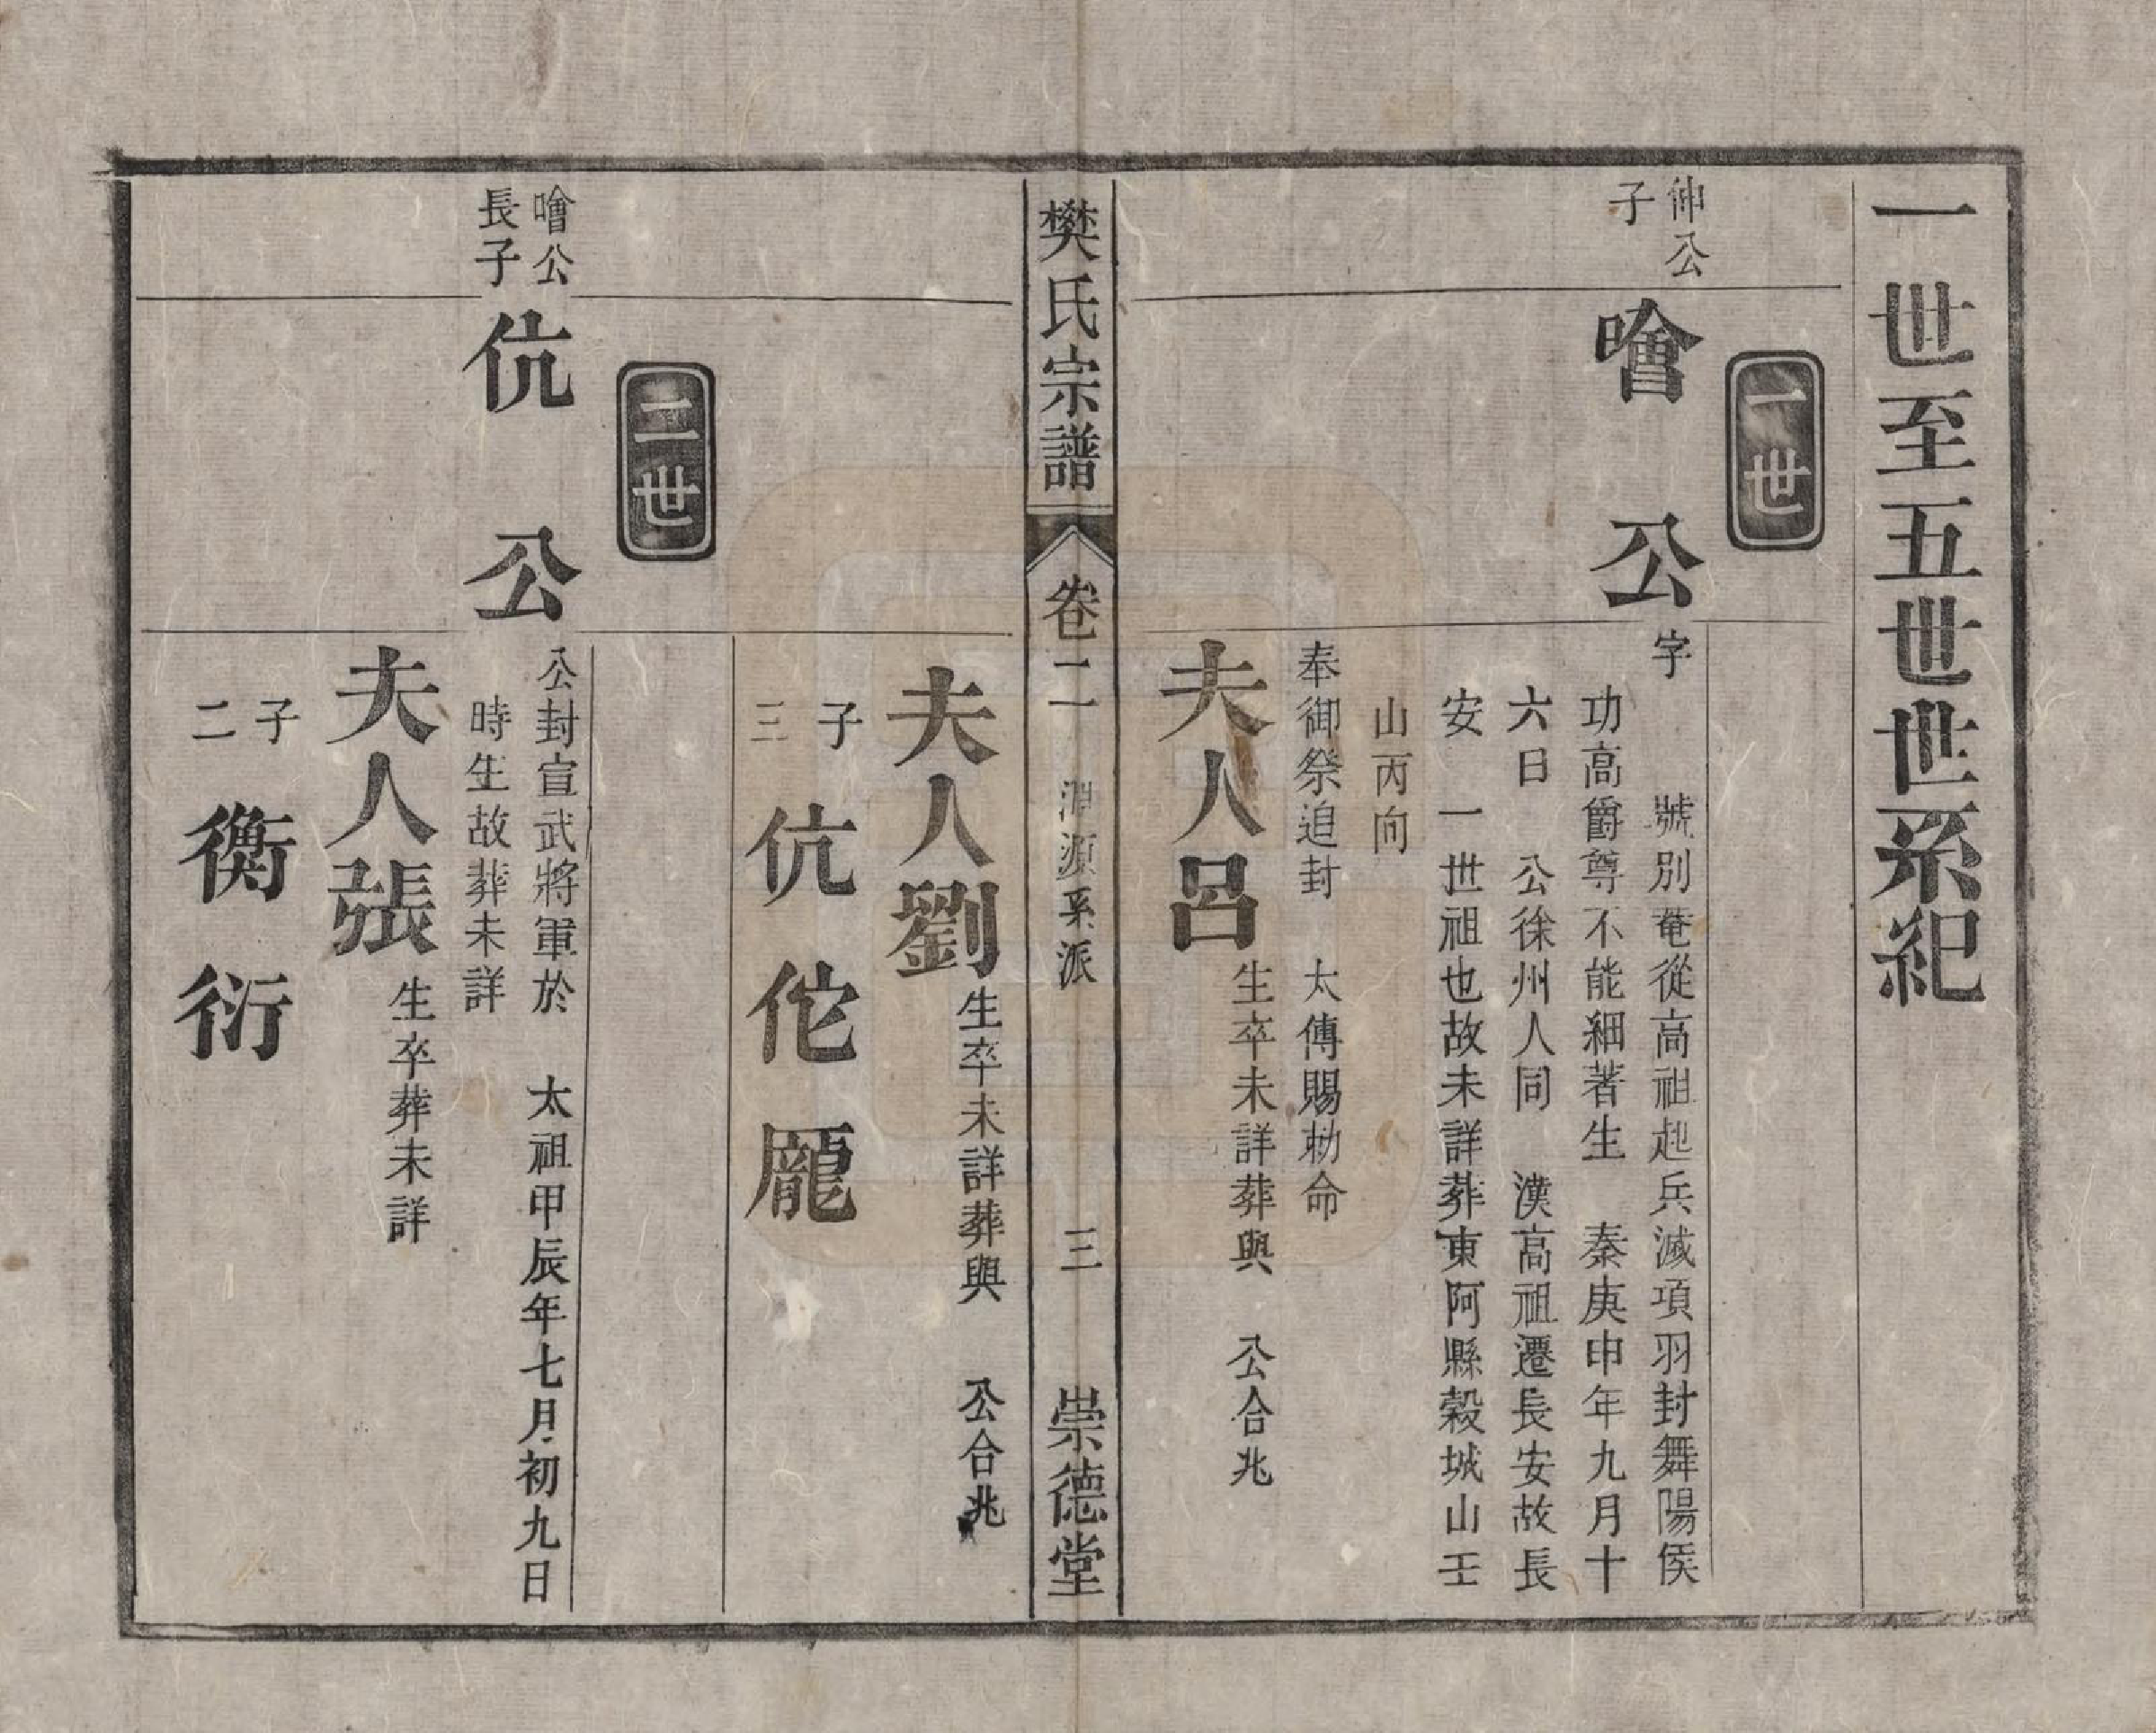 一世至五世世系紀
一世
仲公
子
噲公
字　號別菴從高祖起兵滅項羽封舞陽侯
功高爵尊不能細著生　秦庚申年九月十
六日　公徐州人同　漢高祖遷長安故長
安　一世祖也故未詳葬東阿縣穀城山壬
山丙向
奉御祭追封　太傅賜勅命
夫人呂
生卒未詳葬與　公合兆
樊氏宗譜　卷二　淵源系派　三　崇德堂
夫人劉
生卒未詳葬與　公合兆
子
三
伉　佗　龎
二世
噲公
長子
伉公
公封宣武將軍於　太祖甲辰年七月初九日
時生故葬未詳
夫人張
生卒葬未詳
子
二
衡　衍